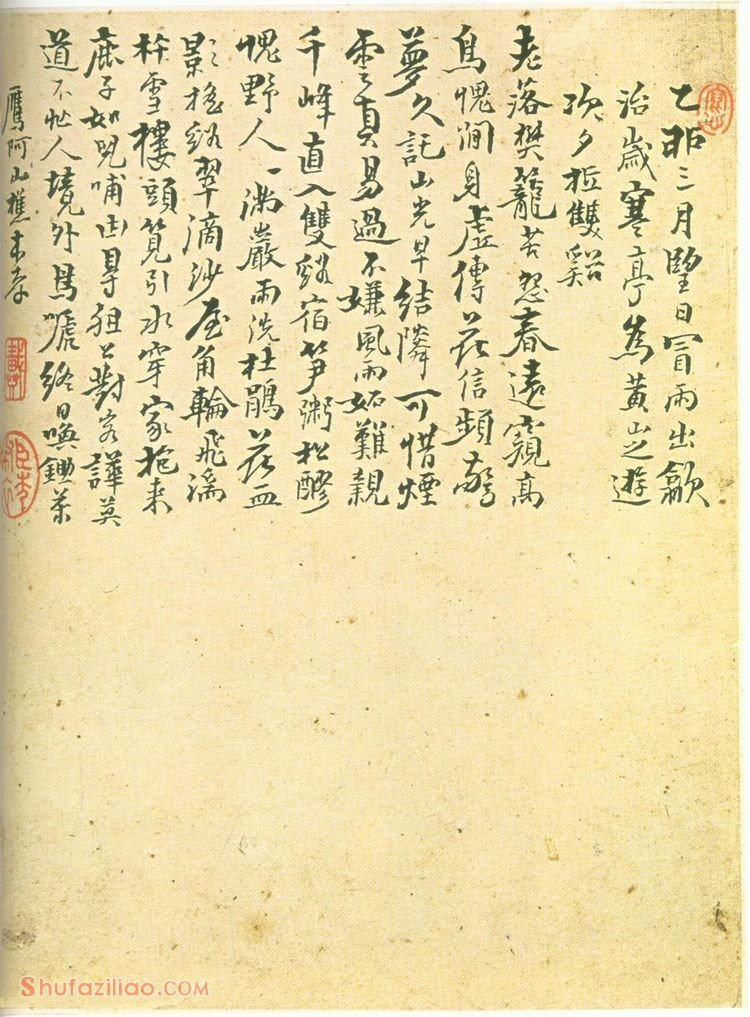 乙卯三月望日冒雨出歙
治歲寒亭為黃山之遊
次夕抵雙谿
老落樊籠苦怨春遠窺高
鳥愧閒身虛傳花信頻驚
夢久託山光早結隣可惜煙
雲真易過不嫌風雨妬難親
千峰直入雙谿宿筍粥松醪
愧野人一滿巖雨洗杜鵑花血
影搖谿翠滴沙屋角輪飛湍
杵雪樓頭筧引水穿家抱来
鹿子如兒哺 尋狙公對客譁莫
道不 人境外鳥 終日喚鋤茶
鷹阿山樵本孝
Shufaziliao.COM